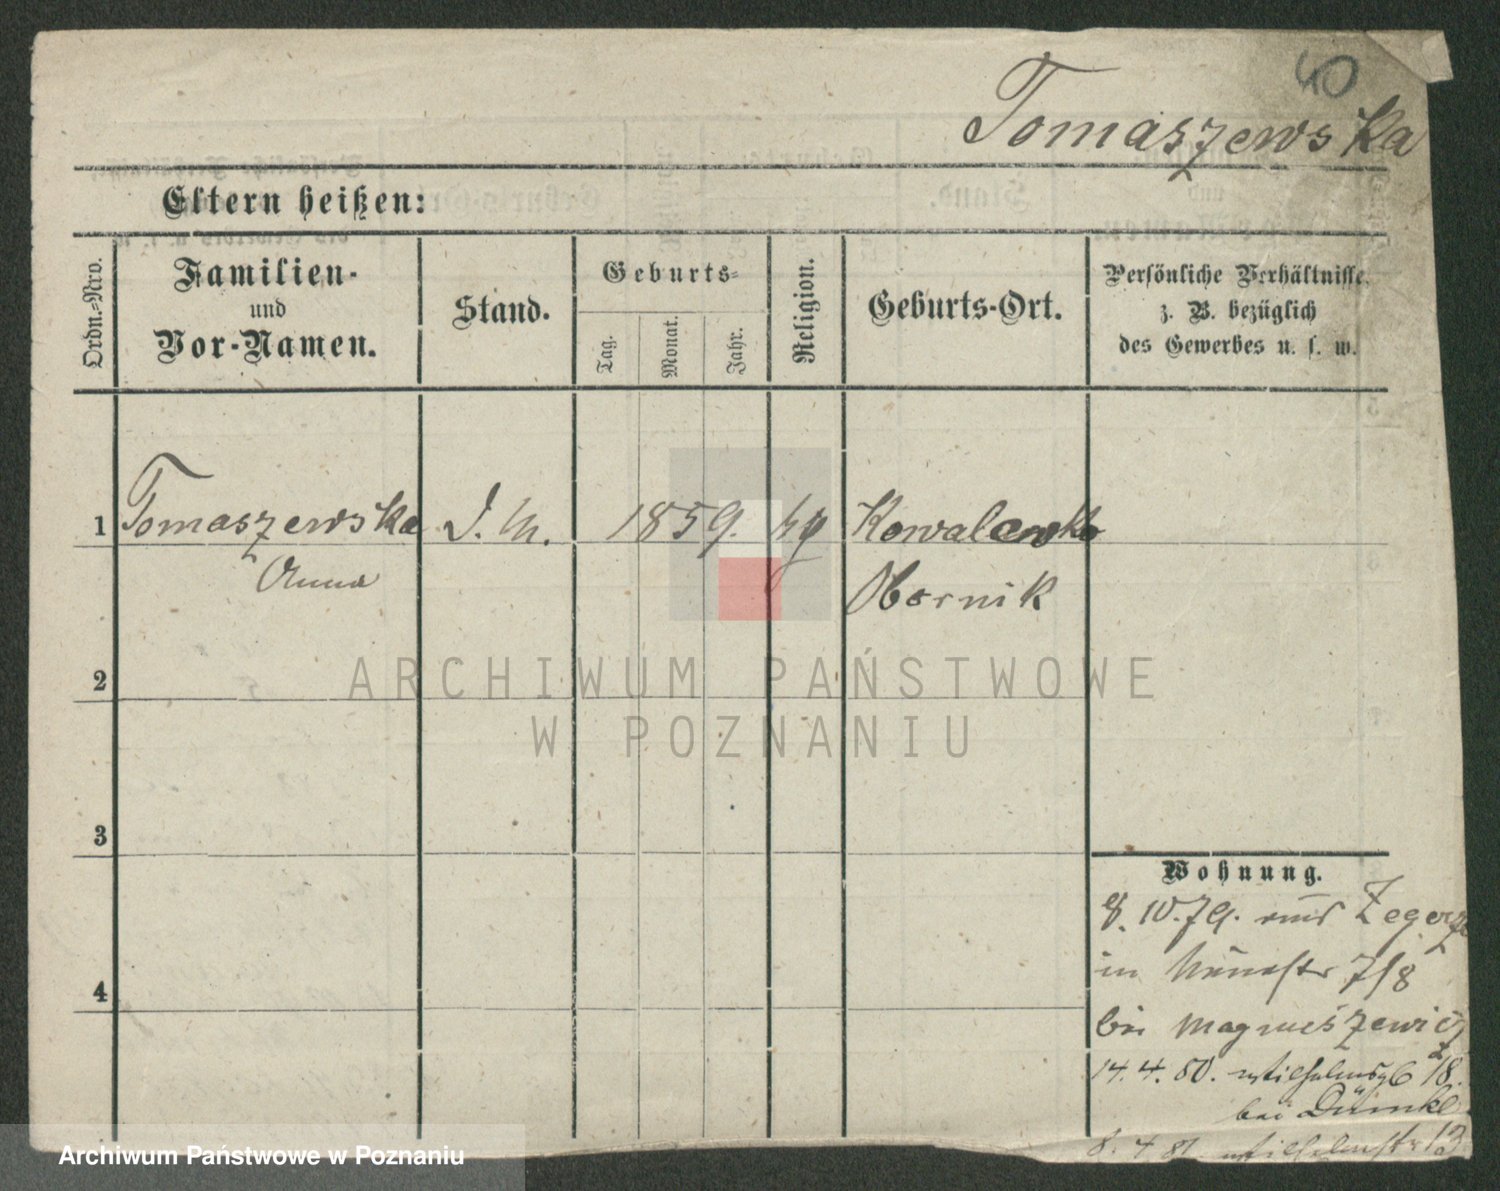 40
Tomaszewska
Eltern heißen:
Ordn.-Nro.
Familien-
und
Vor-Namen.
Stand.
Geburts-
Tag.
Monat.
Jahr.
Religion.
Geburts-Ort.
Persönliche Verhältnisse
z. B. bezüglich
des Gewerbes u. s. w.
1 Tomaszewska D. M. 1859. Kowalewko
Anna
Obornik
2
3
4
Wohnung.
8. 10. 79. aus
in 7/8
bei Magnuszewicz
14. 4. 80. 18.
bei
8. 4. 81. Wilhelmstr 13
ARCHIWUM PAŃSTWOWE
W POZNANIU
Archiwum Państwowe w Poznaniu